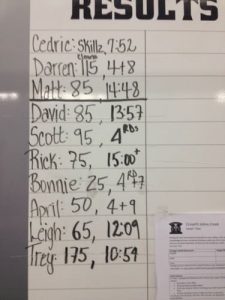 RESULTS
Cedric: Skillz, 7:52
Darren: 115, 4+8
Matt: 85, 14:48
David: 85, 13:57
Scott: 95, 4 RDs
Rick: 75, 15:00+
Bonnie: 25, 4 RD+7
April: 50, 4+9
Leigh: 65, 12:09
Trey: 175, 10:54